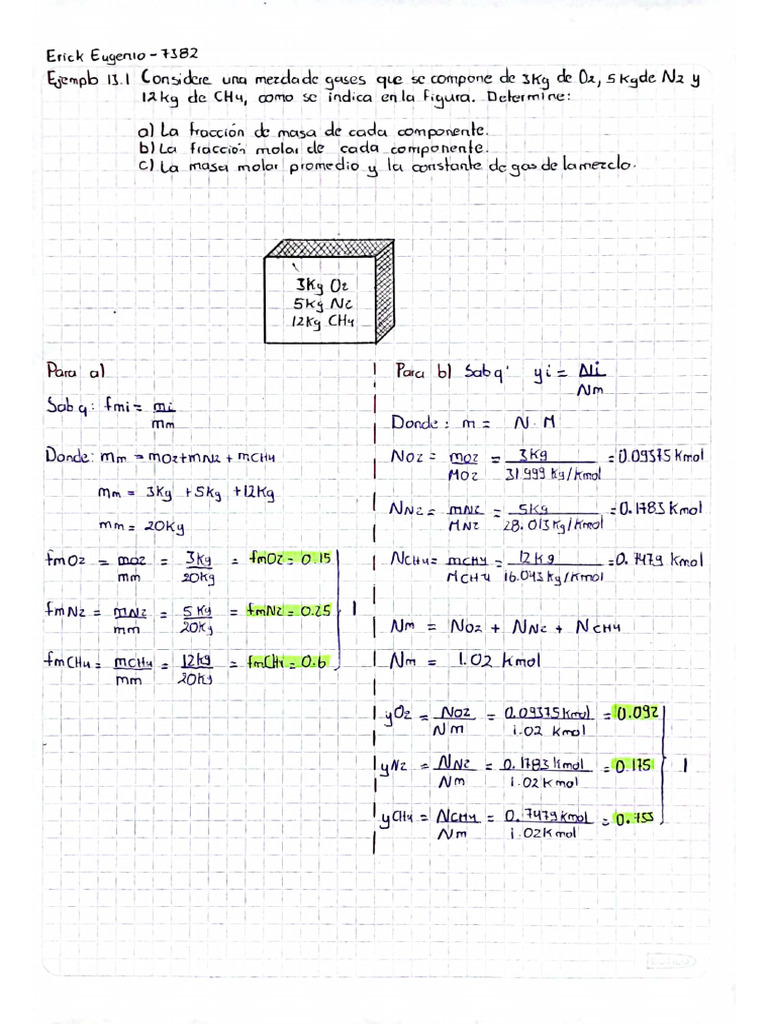 Erick Eugenio - 7382
Ejemplo 13.1 Considere una mezcla de gases que se compone de 3Kg de O2, 5Kg de N2 y
12kg de CH4, como se indica en la figura. Determine:
a) La fracción de masa de cada componente.
b) La fracción molar de cada componente.
c) La masa molar promedio y la constante de gas de la mezcla.
3Kg O2
5Kg N2
12Kg CH4
Para a)
Sab q: fmi = mi / mm
Donde: mm = mO2 + mN2 + mCH4
mm = 3Kg + 5Kg + 12Kg
mm = 20Kg
fmO2 = mO2 / mm = 3Kg / 20Kg = fmO2 = 0.15
fmN2 = mN2 / mm = 5Kg / 20Kg = fmN2 = 0.25
1
fmCH4 = mCH4 / mm = 12kg / 20Kg = fmCH4 = 0.6
Para b) Sab q' yi = Ni / Nm
Donde: m = N · M
NO2 = mO2 / MO2 = 3Kg / 31.999 Kg/Kmol = 0.09375 Kmol
NN2 = mN2 / MN2 = 5Kg / 28.013 Kg/Kmol = 0.1783 Kmol
NCH4 = mCH4 / MCH4 = 12Kg / 16.043 Kg/Kmol = 0.7479 Kmol
Nm = NO2 + NN2 + NCH4
Nm = 1.02 Kmol
yO2 = NO2 / Nm = 0.09375 Kmol / 1.02 Kmol = 0.092
yN2 = NN2 / Nm = 0.1783 Kmol / 1.02 Kmol = 0.175
1
yCH4 = NCH4 / Nm = 0.7479 Kmol / 1.02 Kmol = 0.733